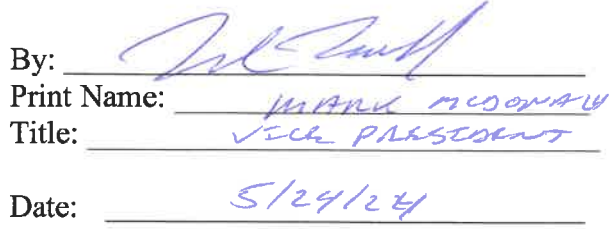 By:
Print Name: MARK MCDONALD
Title: VICE PRESIDENT
Date: 5/24/24